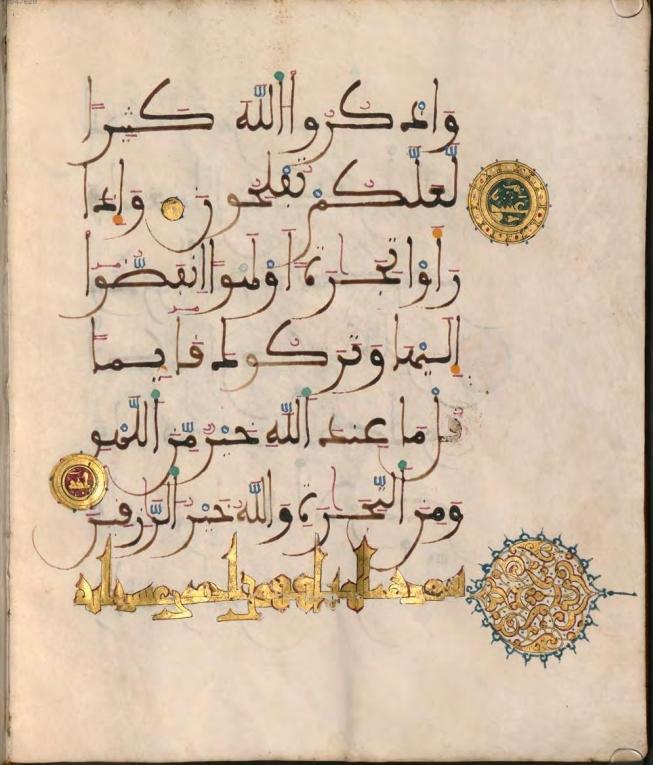 وَاذْكُرُوا اللَّهَ كَثِيرًا
لَّعَلَّكُمْ تُفْلِحُونَ وَإِذَا
رَأَوْا تِجَٰرَةً أَوْ لَهْوًا انفَضُّوا
إِلَيْهَا وَتَرَكُوكَ قَايِمًا
قُلْ مَا عِندَ اللَّهِ خَيْرٌ مِّنَ اللَّهْوِ
وَمِنَ التِّجَٰرَةِ وَاللَّهُ خَيْرُ الرَّٰزِقِينَ
سورة